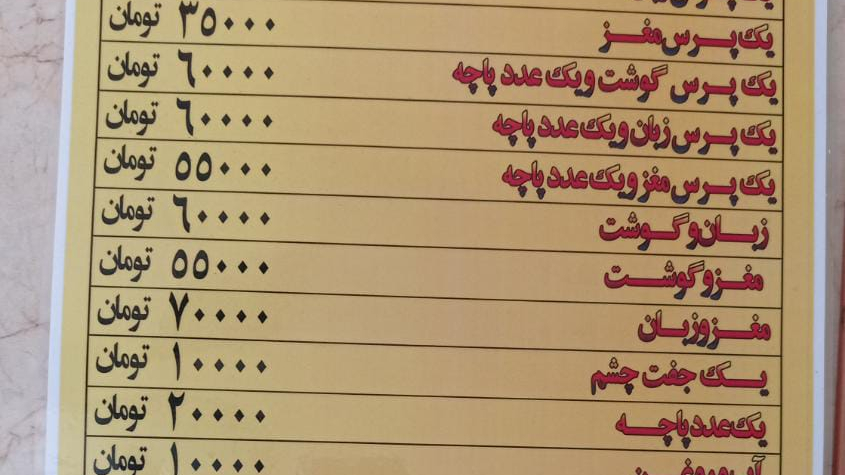 یک پرس مغز ۳۵۰۰۰ تومان
یک پرس گوشت و یک عدد پاچه ۶۰۰۰۰ تومان
یک پرس زبان و یک عدد پاچه ۶۰۰۰۰ تومان
یک پرس مغز و یک عدد پاچه ۵۵۰۰۰ تومان
زبان و گوشت ۶۰۰۰۰ تومان
مغز و گوشت ۵۵۰۰۰ تومان
مغز و زبان ۷۰۰۰۰ تومان
یک جفت چشم ۱۰۰۰۰ تومان
یک عدد پاچه ۲۰۰۰۰ تومان
۱۰۰۰۰ تومان